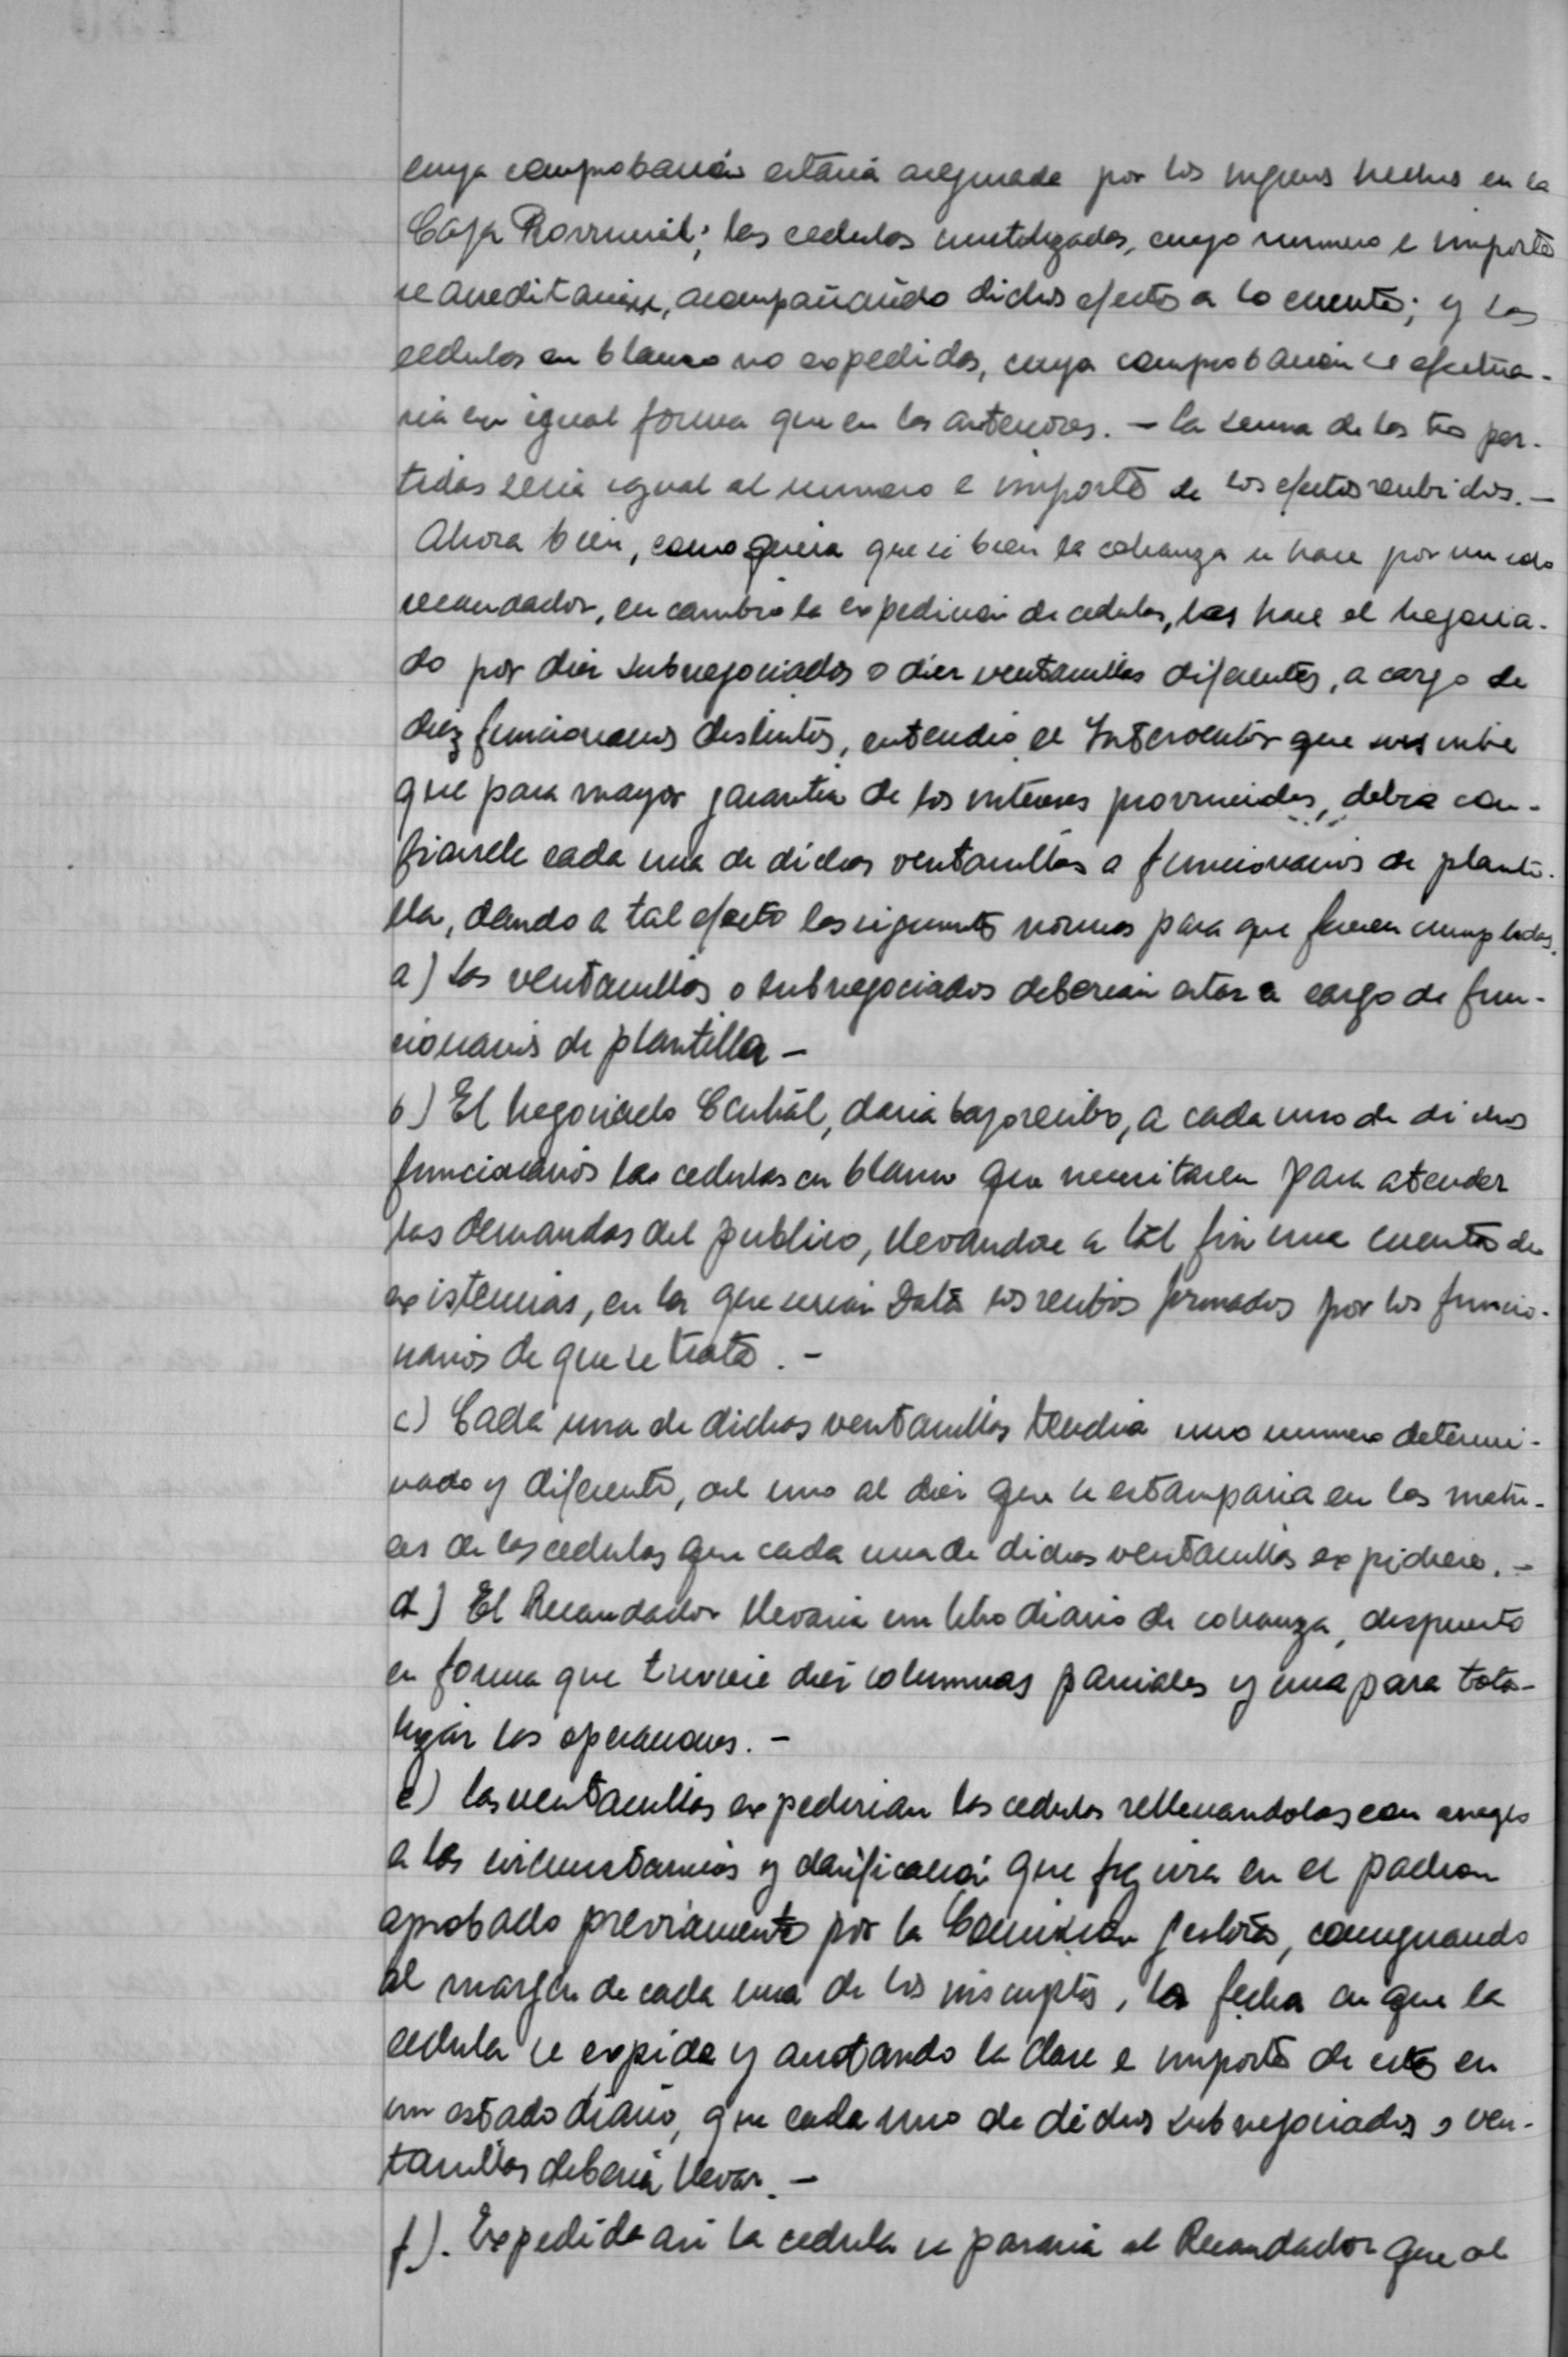 cuya comprobación estaria asegurada por los ingresos hechos en la
Caja Provincial; las cedulas inutilizadas, cuyo numero e importe
se acreditaria, acompañando dichos efectos a la cuenta; y las
cedulas en blanco no expedidas, cuya comprobación se efectua-
ria en igual forma que en las anteriores. — La suma de las tres par-
tidas seria igual al numero e importe de los efectos recibidos. —
Ahora bien, como quiera que si bien la cobranza se hace por un solo
recaudador, en cambio la expedición de cedulas, las hace el Negocia-
do por diez subnegociados o diez ventanillas diferentes, a cargo de
diez funcionarios distintos, entendió el Interventor que suscribe
que para mayor garantia de los intereses provinciales, debia con-
fiarsele cada una de dichas ventanillas a funcionarios de planti-
lla, dando a tal efecto las siguientes normas para que fueran cumplidas.
a) Las ventanillas o subnegociados deberian estar a cargo de fun-
cionarios de plantilla —
b) El Negociado Central, daria bajo recibo, a cada uno de dichos
funcionarios las cedulas en blanco que necesitaren para atender
las demandas del publico, llevandose a tal fin una cuenta de
existencias, en la que serian Data los recibos firmados por los funcio-
narios de que se trata. —
c) Cada una de dichas ventanillas tendria uno numero determi-
nado y diferente, del uno al diez que se estamparia en las matri-
ces de las cedulas que cada una de dichas ventanillas expidiere. —
d) El Recaudador llevaria un libro diario de cobranza, dispuesto
en forma que tuviere diez columnas parciales y una para tota-
lizar las operaciones. —
e) Las ventanillas expedirian las cedulas rellenandolas con arreglo
a las circunstancias y clasificación que figura en el padron
aprobado previamente por la Comisión gestora, consignando
al margen de cada uno de los inscriptos, la fecha en que la
cedula se expida y anotando la clase e importe de estas en
un estado diario, que cada uno de dichos subnegociados o ven-
tanillas deberia llevar. —
f). Expedida asi la cedula se pasaria al Recaudador que al